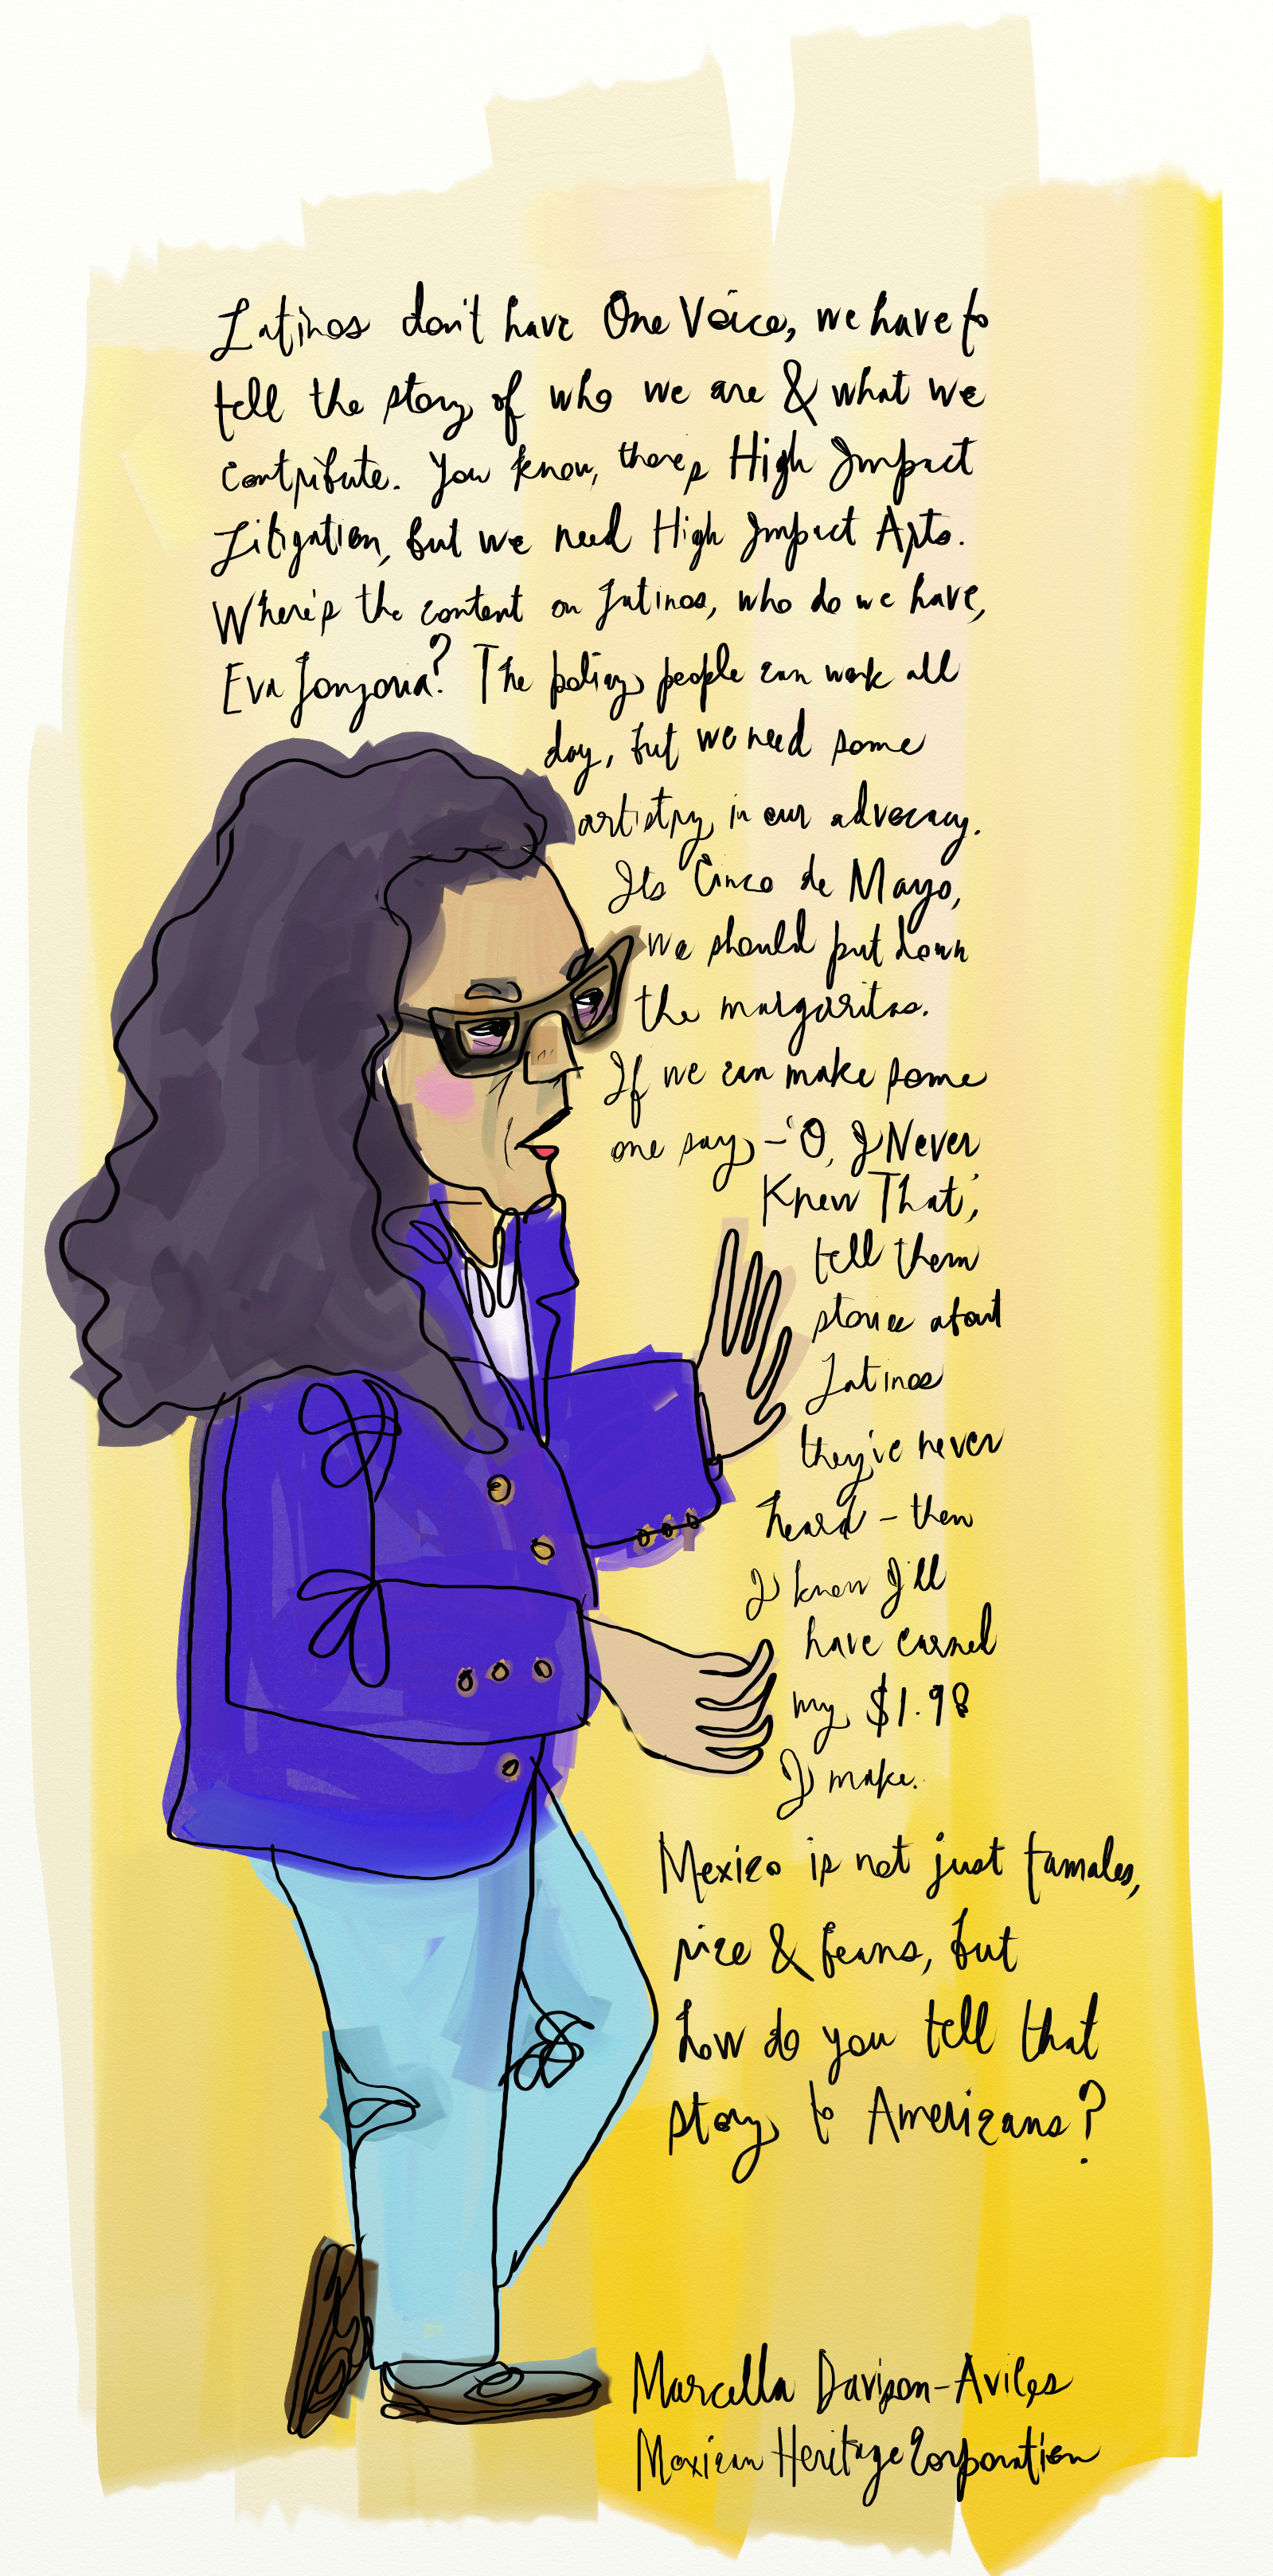 Latinos don't have One Voice, we have to
tell the story of who we are & what we
contribute. You know, there's High Impact
Litigation, but we need High Impact Arts.
Where's the content on Latinos, who do we have,
Eva Longoria? The policy people can work all
day, but we need some
artistry in our advocacy.
Its Cinco de Mayo,
we should put down
the margaritas.
If we can make some
one say – 'O, I Never
Knew That',
tell them
stories about
Latinos
they've never
heard – then
I know I'll
have earned
my $1.98
I make.
Mexico is not just tamales,
rice & beans, but
how do you tell that
story to Americans?
Marcella Davison-Aviles
Mexican Heritage Corporation